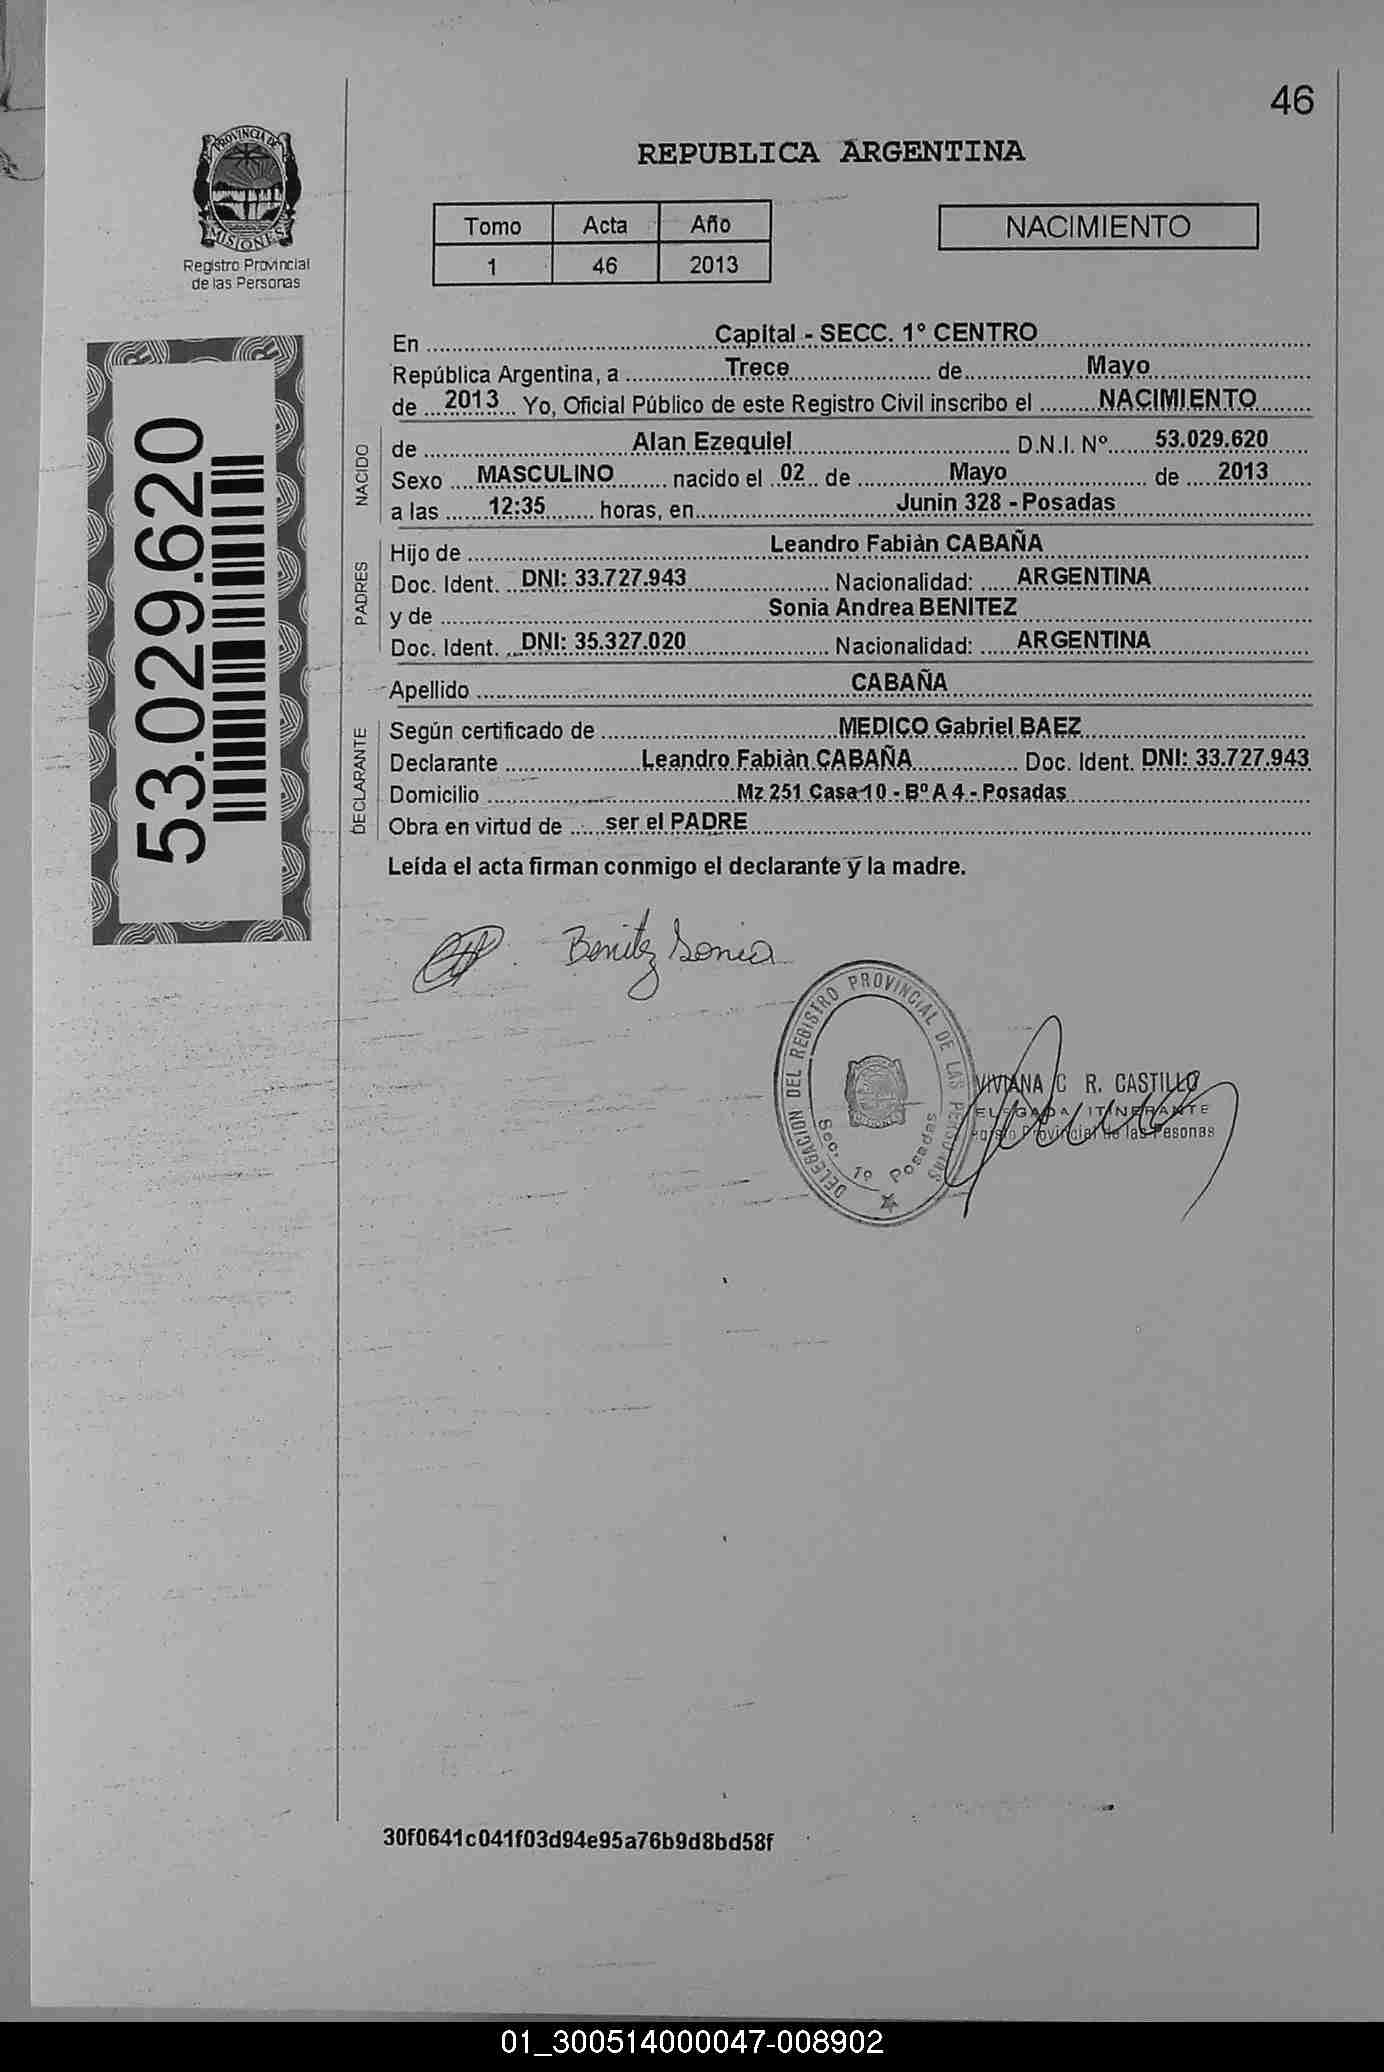 46
PROVINCIA DE
MISIONES
Registro Provincial
de las Personas
REPUBLICA ARGENTINA
Tomo Acta Año
1 46 2013
NACIMIENTO
53.029.620
En Capital - SECC. 1° CENTRO
República Argentina, a Trece de Mayo
de 2013 Yo, Oficial Público de este Registro Civil inscribo el NACIMIENTO
NACIDO
de Alan Ezequiel D.N.I. Nº 53.029.620
Sexo MASCULINO nacido el 02 de Mayo de 2013
a las 12:35 horas, en Junin 328 - Posadas
PADRES
Hijo de Leandro Fabiàn CABAÑA
Doc. Ident. DNI: 33.727.943 Nacionalidad: ARGENTINA
y de Sonia Andrea BENITEZ
Doc. Ident. DNI: 35.327.020 Nacionalidad: ARGENTINA
Apellido CABAÑA
DECLARANTE
Según certificado de MEDICO Gabriel BAEZ
Declarante Leandro Fabiàn CABAÑA Doc. Ident. DNI: 33.727.943
Domicilio Mz 251 Casa 10 - Bº A 4 - Posadas
Obra en virtud de ser el PADRE
Leída el acta firman conmigo el declarante y la madre.
Benitez Sonia
DELEGACION DEL REGISTRO PROVINCIAL DE LAS PERSONAS
Sec. 1º Posadas
VIVIANA C R. CASTILLO
ELEGADA ITINERANTE
egistro Provincial de las Pesonas
30f0641c041f03d94e95a76b9d8bd58f
01_300514000047-008902